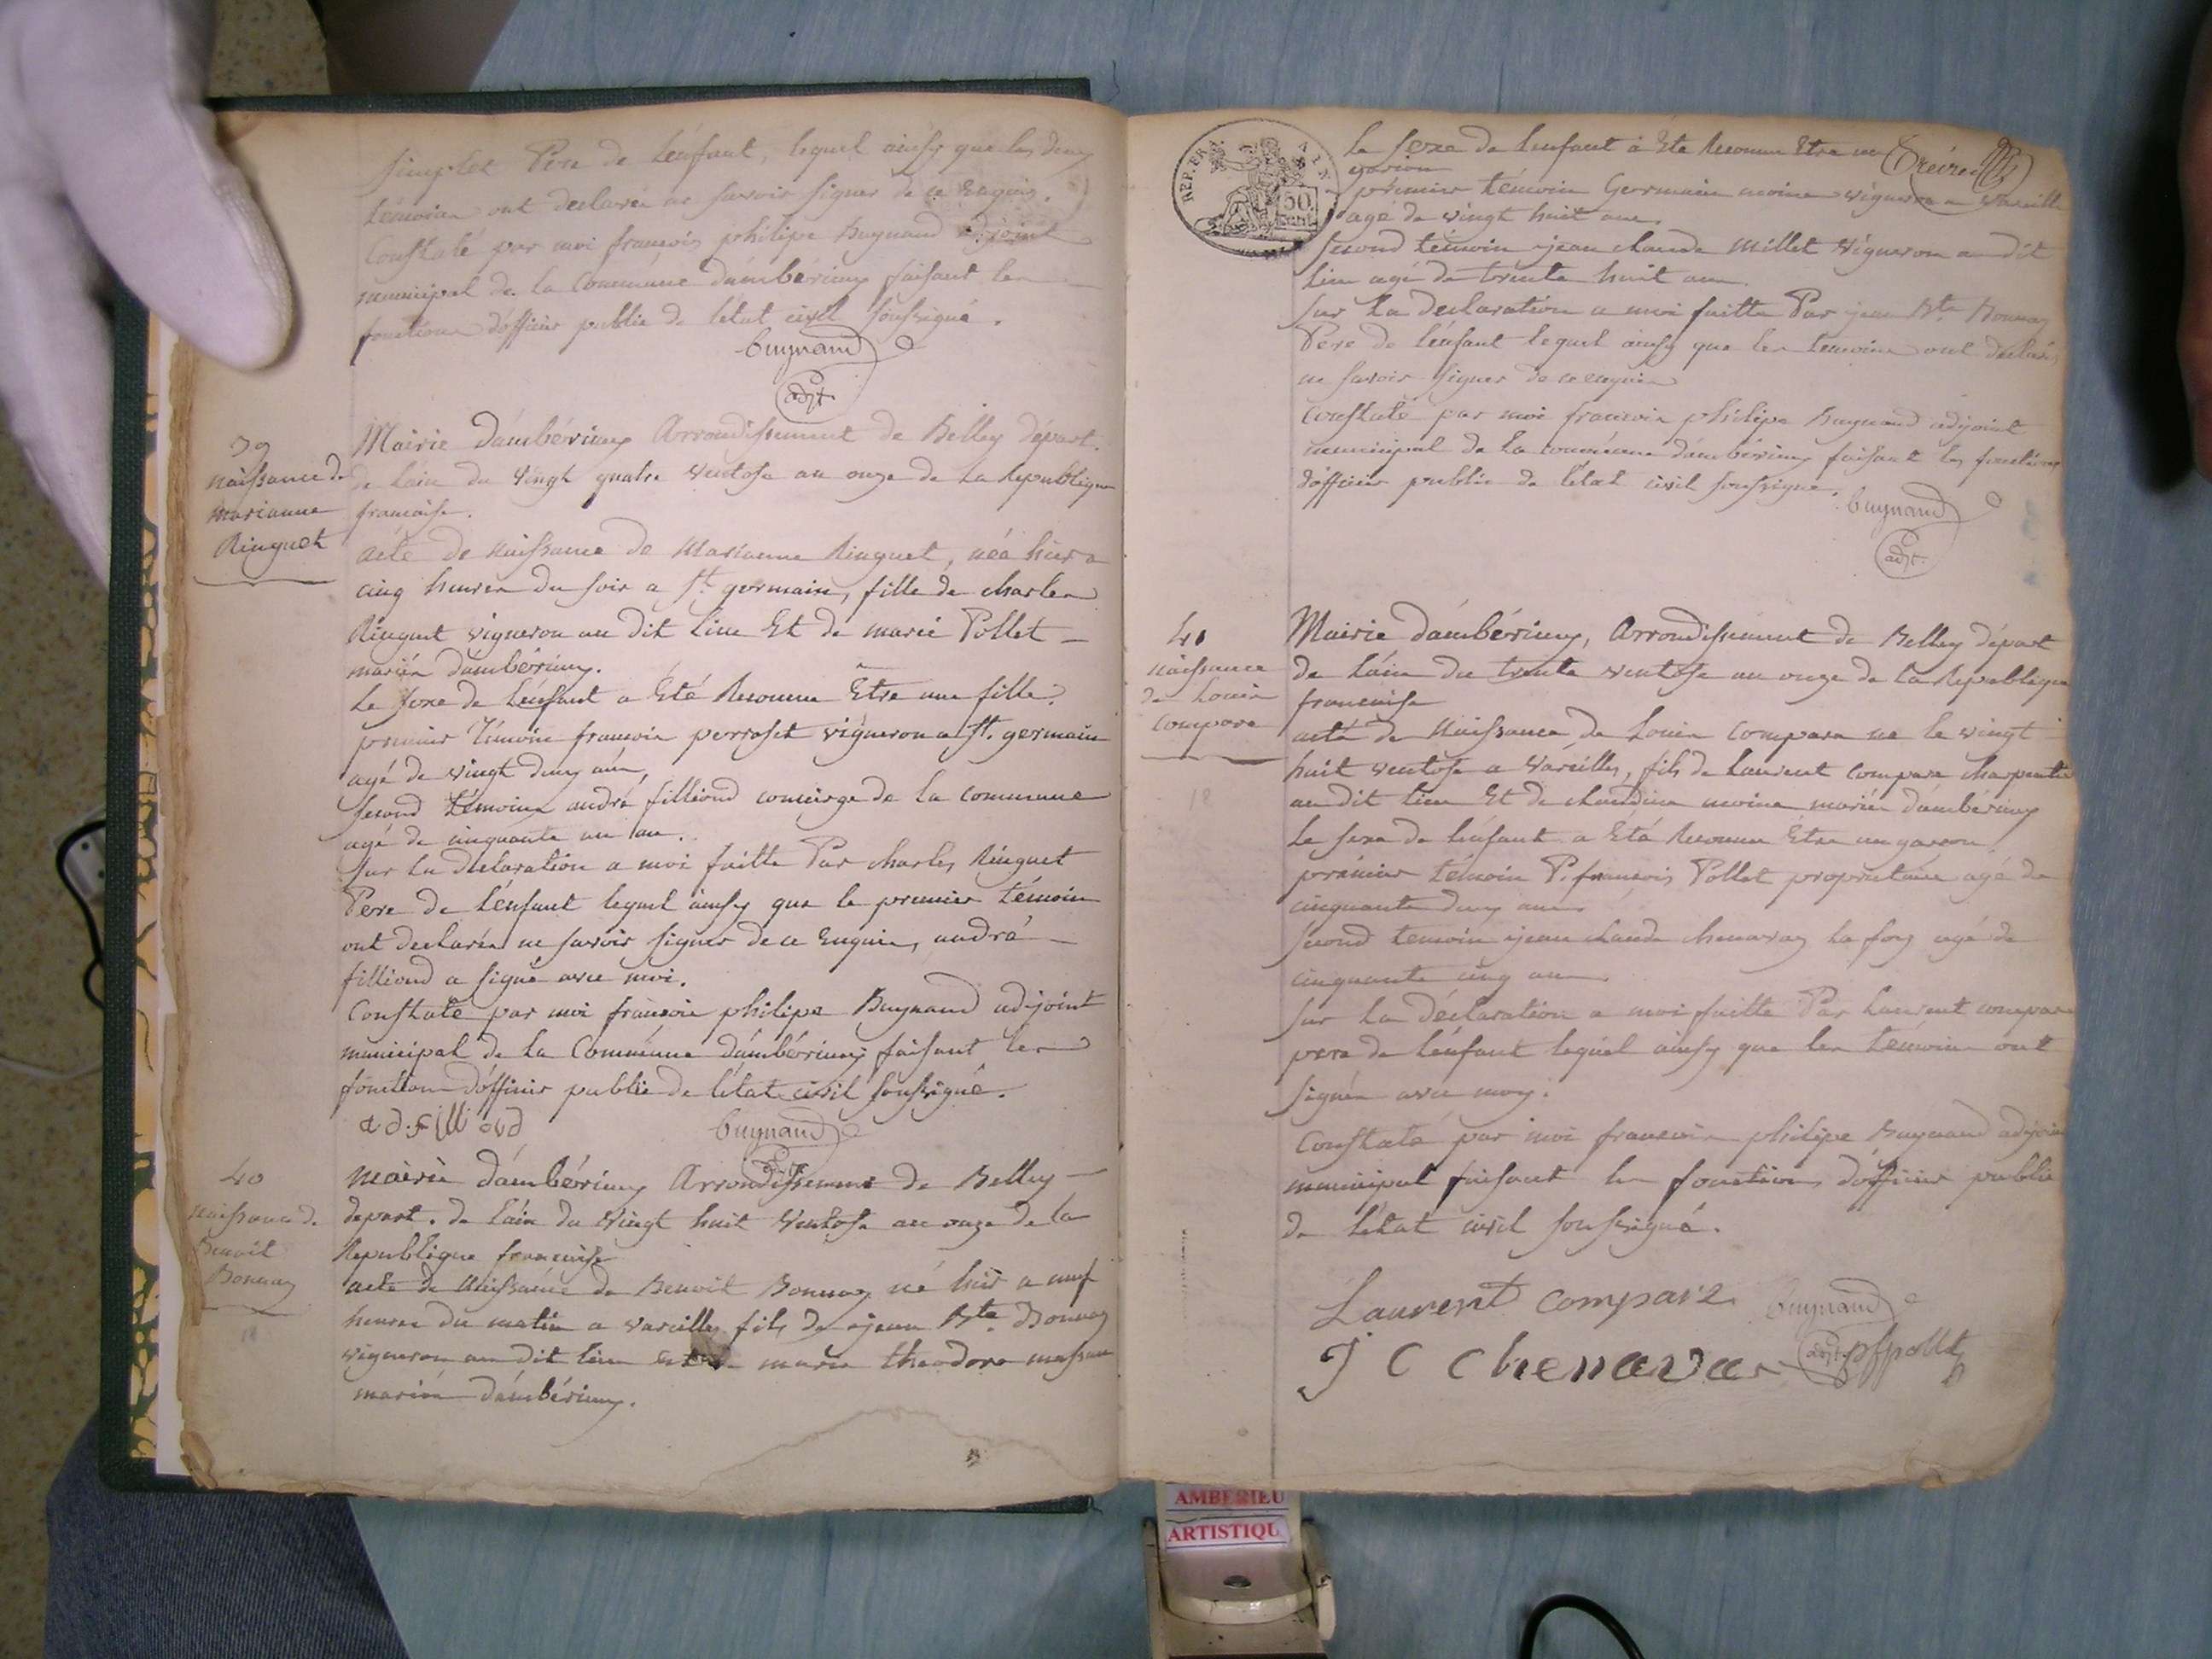 simplet Pere de l'énfant, lequel ainsy que les deux
témoins ont declarés ne savoir signer de ce Enquis.
Constaté par moi françois philipe Buynand adjoint
municipal de la Commune d'ambérieux faisant les
fonctions d'officier public de l'état civil soussigné.
buynand
adjt.
39
naissance de
marianne
Ringuet
Mairie d'ambérieux Arrondissement de Belley départ.
de l'ain du Vingt quatre ventose an onze de la Republique
francaise.
acte de naissance de Marianne Ringuet, née hier a
cinq heures du soir a St. germain, fille de charles
Ringuet vigneron au dit lieu Et de marie Pollet
mariés d'ambérieux.
le sexe de l'énfant a Eté Reconnu Etre une fille.
premier témoin francois perroset vigneron a St. germain
agé de vingt deux ans,
second témoin andré filliond concierge de la commune
agé de cinquante un an.
sur la declaration a moi faitte Par charles Ringuet
Pere de l'énfant lequel ainsy que le premier témoin
ont declarés ne savoir signer de ce Enquis, andré
filliond a signé avec moi.
Constaté par moi françois philipe Buynand adjoint
municipal de la Commune d'ambérieux faisant les
fonctions d'officier public de l'état civil soussigné.
buynand
adjt
40
naissance de
Benoit
Bonnaz
mairie d'ambérieux Arrondissement de Belley
depart. de l'ain du vingt huit ventose an onze de la
Republique francaise
acte de naissance de Benoit Bonnaz né hier a neuf
heures du matin a vareilles fils de jean Bte Bonnaz
vigneron au dit lieu Et de marie theodore
mariés d'ambérieux.
REP. FRA.
50
cent.
le sexe de l'enfant a Eté Reconnu Etre un
garcon
prémier témoin Germain moine vigneron a vareille
agé de vingt huit ans.
second témoin jean claude Millet vigneron au dit
lieu agé de trente huit ans.
sur la declaration a moi faitte Par jean Bte Bonnaz
Pere de l'énfant lequel ainsy que les temoins ont declaré
ne savoir signer de ce enquis
constaté par moi françois philipe Buynand adjoint
municipal de la commune d'ambérieux faisant les fonctions
d'officier public de l'état civil soussigné.
buynand
adjt.
41
naissance
de Louis
compare
Mairie d'ambérieux, Arrondissement de Belley départ
de l'ain du trente ventose an onze de la Republique
francaise
acte de Naissance de Louis compare né le vingt
huit ventose a Vareilles, fils de laurent compare charpentier
au dit lieu Et de claudine moine mariés d'ambérieux
le sexe de l'énfant a Eté Reconnu Etre un garcon.
prémier témoin P. françois Pollet propriétaire agé de
cinquante deux ans.
second temoin jean claude chenavaz la foy agé de
cinquante cinq ans.
sur la déclaration a moi faitte Par laurent compare
pere de l'énfant lequel ainsy que les témoins ont
signés avec moy.
Constaté par moi francois philipe Buynand adjoint
municipal faisant les fonctions d'officier public
de l'état civil soussigné.
Laurent compare buynand
J C chenavas adjt. pfpollet
AMBERIEU
ARTISTIQU